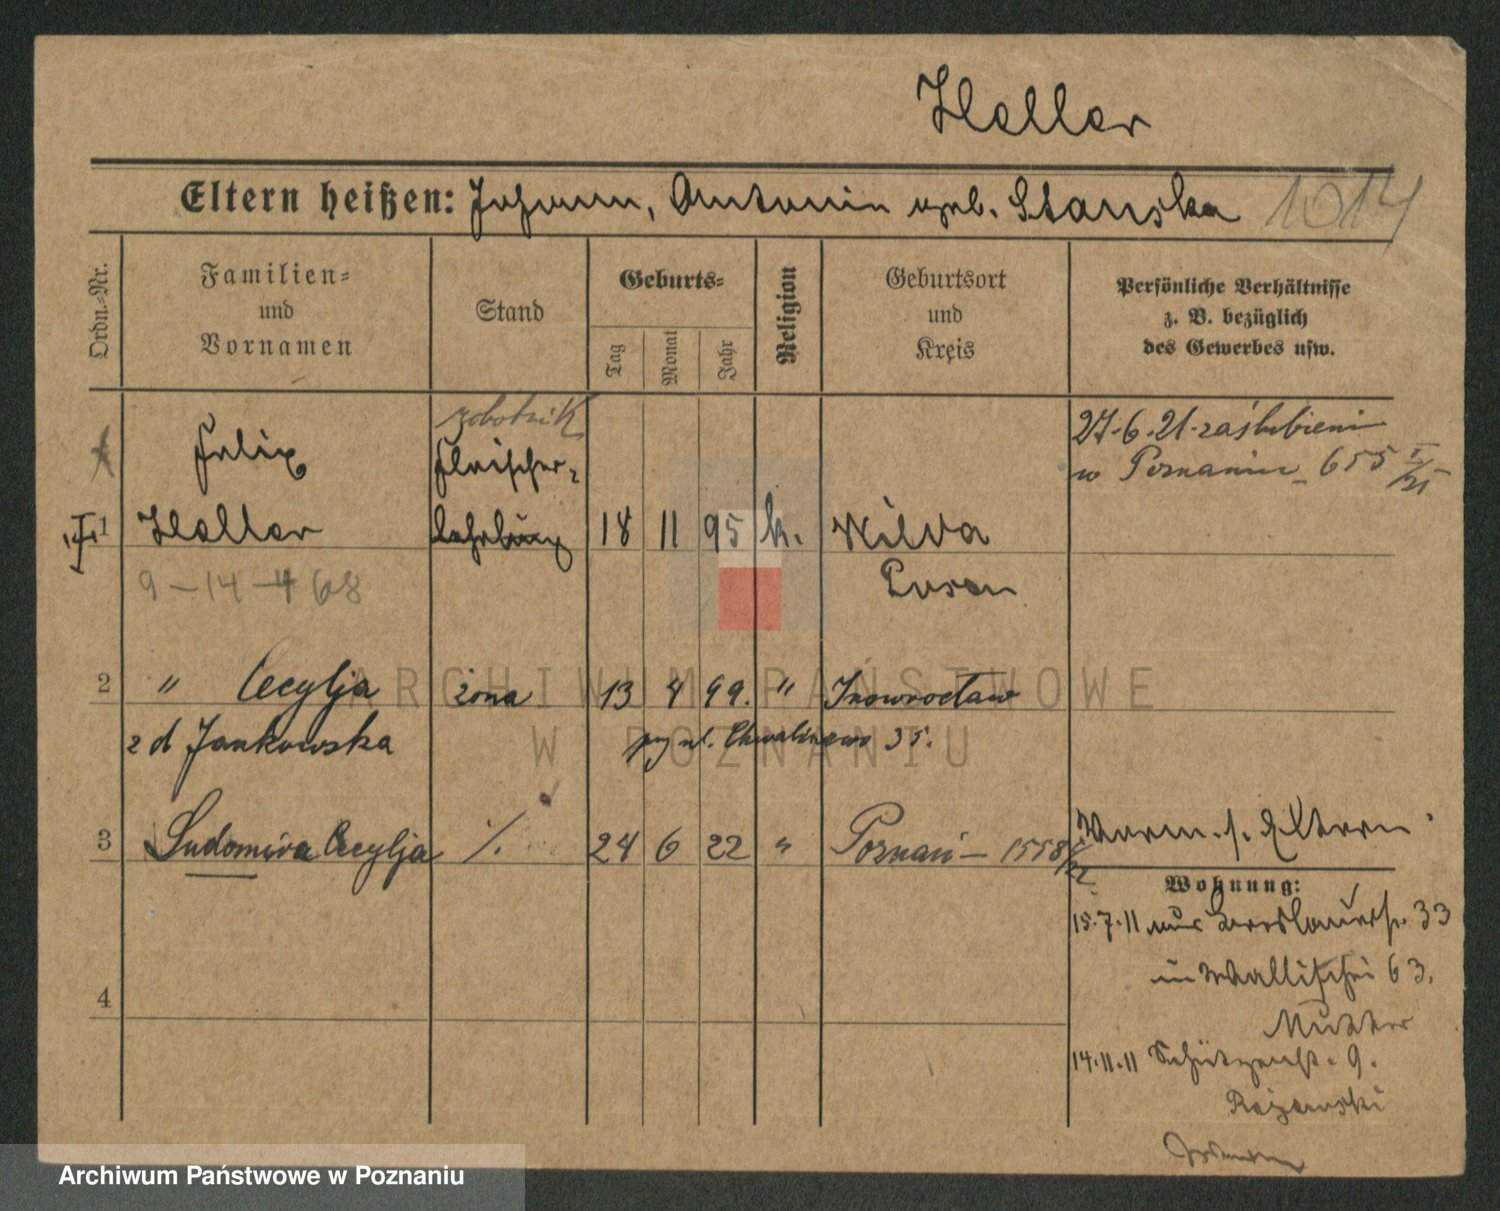 Heller
Eltern heißen: Johann, Antonin geb. Stanska 1014
Ordn.-Nr.
Familien- und Vornamen
Stand
Geburts-
Tag Monat Jahr
Religion
Geburtsort und Kreis
Persönliche Verhältnisse
z. B. bezüglich
des Gewerbes usw.
robotnik
27.6.21 zaślubieni
w Poznaniu 655 I/21
Felix Fleischer-
1 Heller lehrling 18 11 95 k. Wilda
9-14-468 Posen
2 " Cecylja żona 13 4 99. " Inowrocław
z d Jankowska
3 Ludomira Cecylja ./. 24 6 22 " Poznań - 1558
Worm. s. Eltern
Wohnung:
15.7.11 33
in Wallischei 63.
Mutter
4
14.11.11 Schützenstr. 9.
ARCHIWUM PAŃSTWOWE
W POZNANIU
Archiwum Państwowe w Poznaniu